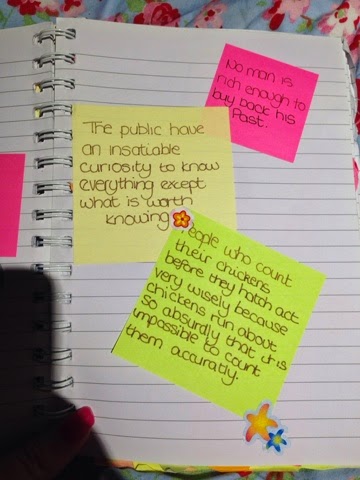 No man is
rich enough to
buy back his
Past.
The public have
an insatiable
curiosity to know
everything except
what is worth
knowing
People who count
their chickens
before they hatch act
very wisely because
chickens run about
so absurdly that it is
impossible to count
them accuratly.